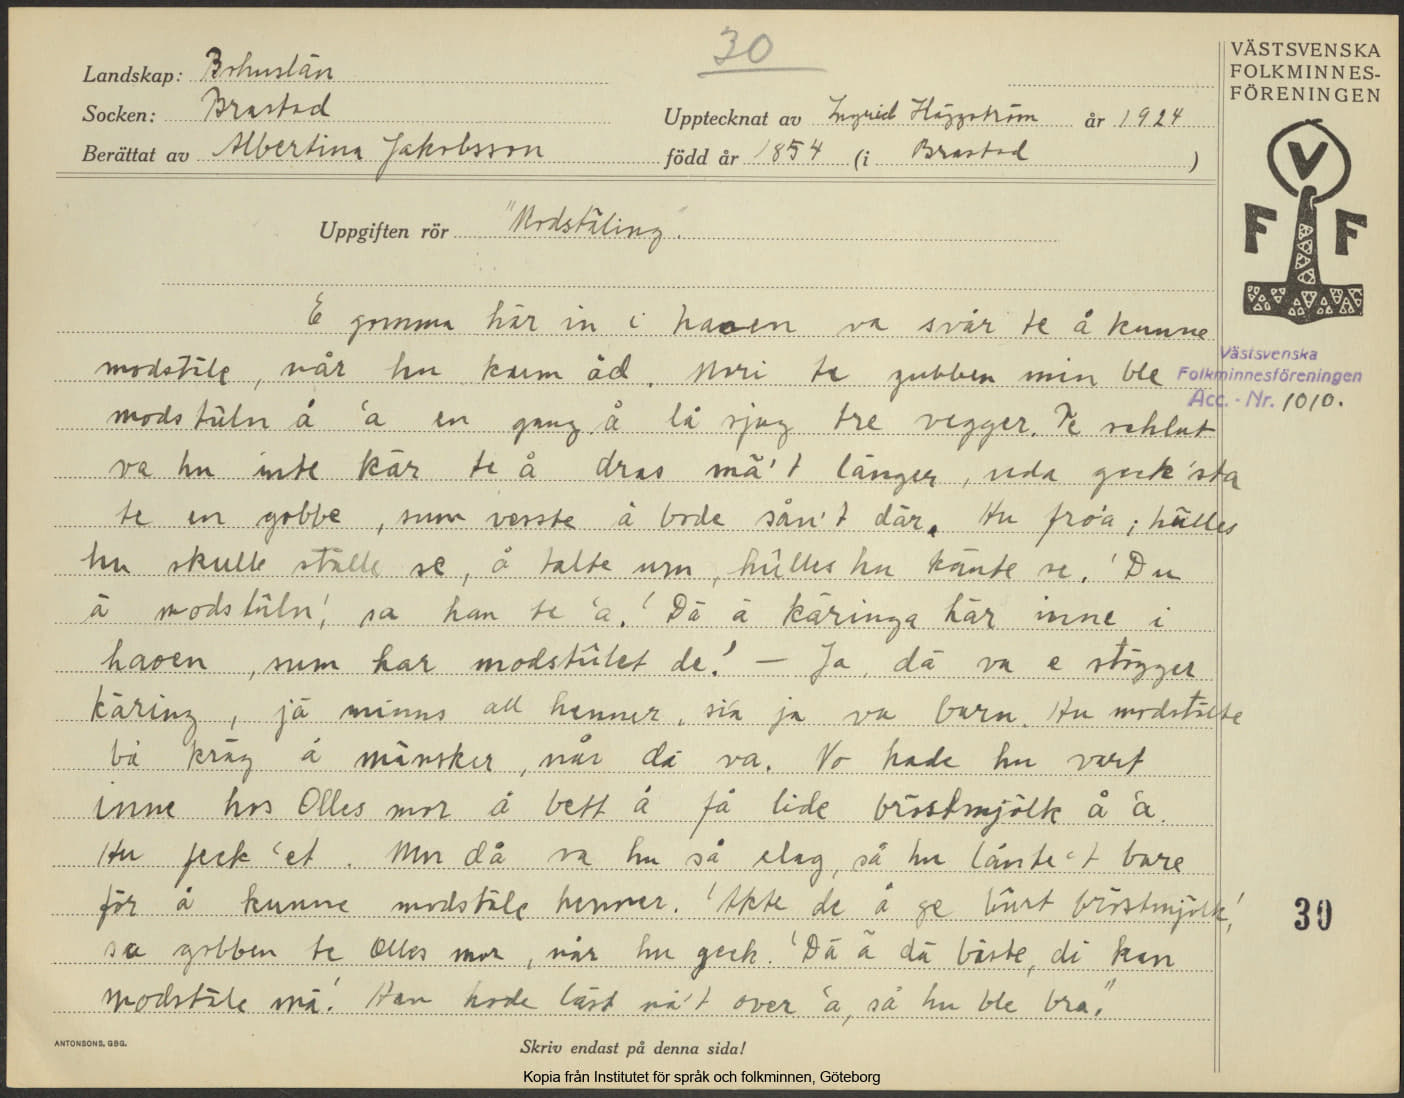 30
Landskap: Bohuslän
Socken: Brastad
Upptecknat av Ingrid Häggström år 1924
Berättat av Albertina Jakobsson född år 1854 (i Brastad)
Uppgiften rör "Modstüling".
VÄSTSVENSKA
FOLKMINNES-
FÖRENINGEN
V
F F
Västsvenska
Folkminnesföreningen
Acc. - Nr. 1010.
E gomma här in i haoen va svår te å kunne
modstüle, når hu kum åd. Mori te gubben min ble
modstüln å 'a en gang å lå sjug tre vegger. Te schlut
va hu inte kär te å dras mä't länger, uda geck 'sta
te en gobbe, sum vesste å bode sån't där. Hu fro'a, hülles
hu skulle ställe se, å talte um, hülles hu känte se. 'Du
ä modstüln', sa han te 'a. 'Dä ä käringa här inne i
haoen, sum har modstület de.' — Ja, dä va e stögger
käring, jä minns all henner, sia ja va barn. Hu modstülte
bå kräg å mänsker, når dä va. No hade hu vart
inne hos Olles mor å bett å få lide bröstmjölk å 'a.
Hu feck 'et. Mor då va hu så elag, så hu lånte't bare
för å kunne modstüle henner. 'Akte de å ge bürt bröstmjölk,'
sa gobben te Olles mor, når hu geck. 'Dä ä dä bäste, di kan
modstüle mä.' Han hode läst nå't over 'a, så hu ble bra."
30
ANTONSONS, GBG.
Skriv endast på denna sida!
Kopia från Institutet för språk och folkminnen, Göteborg